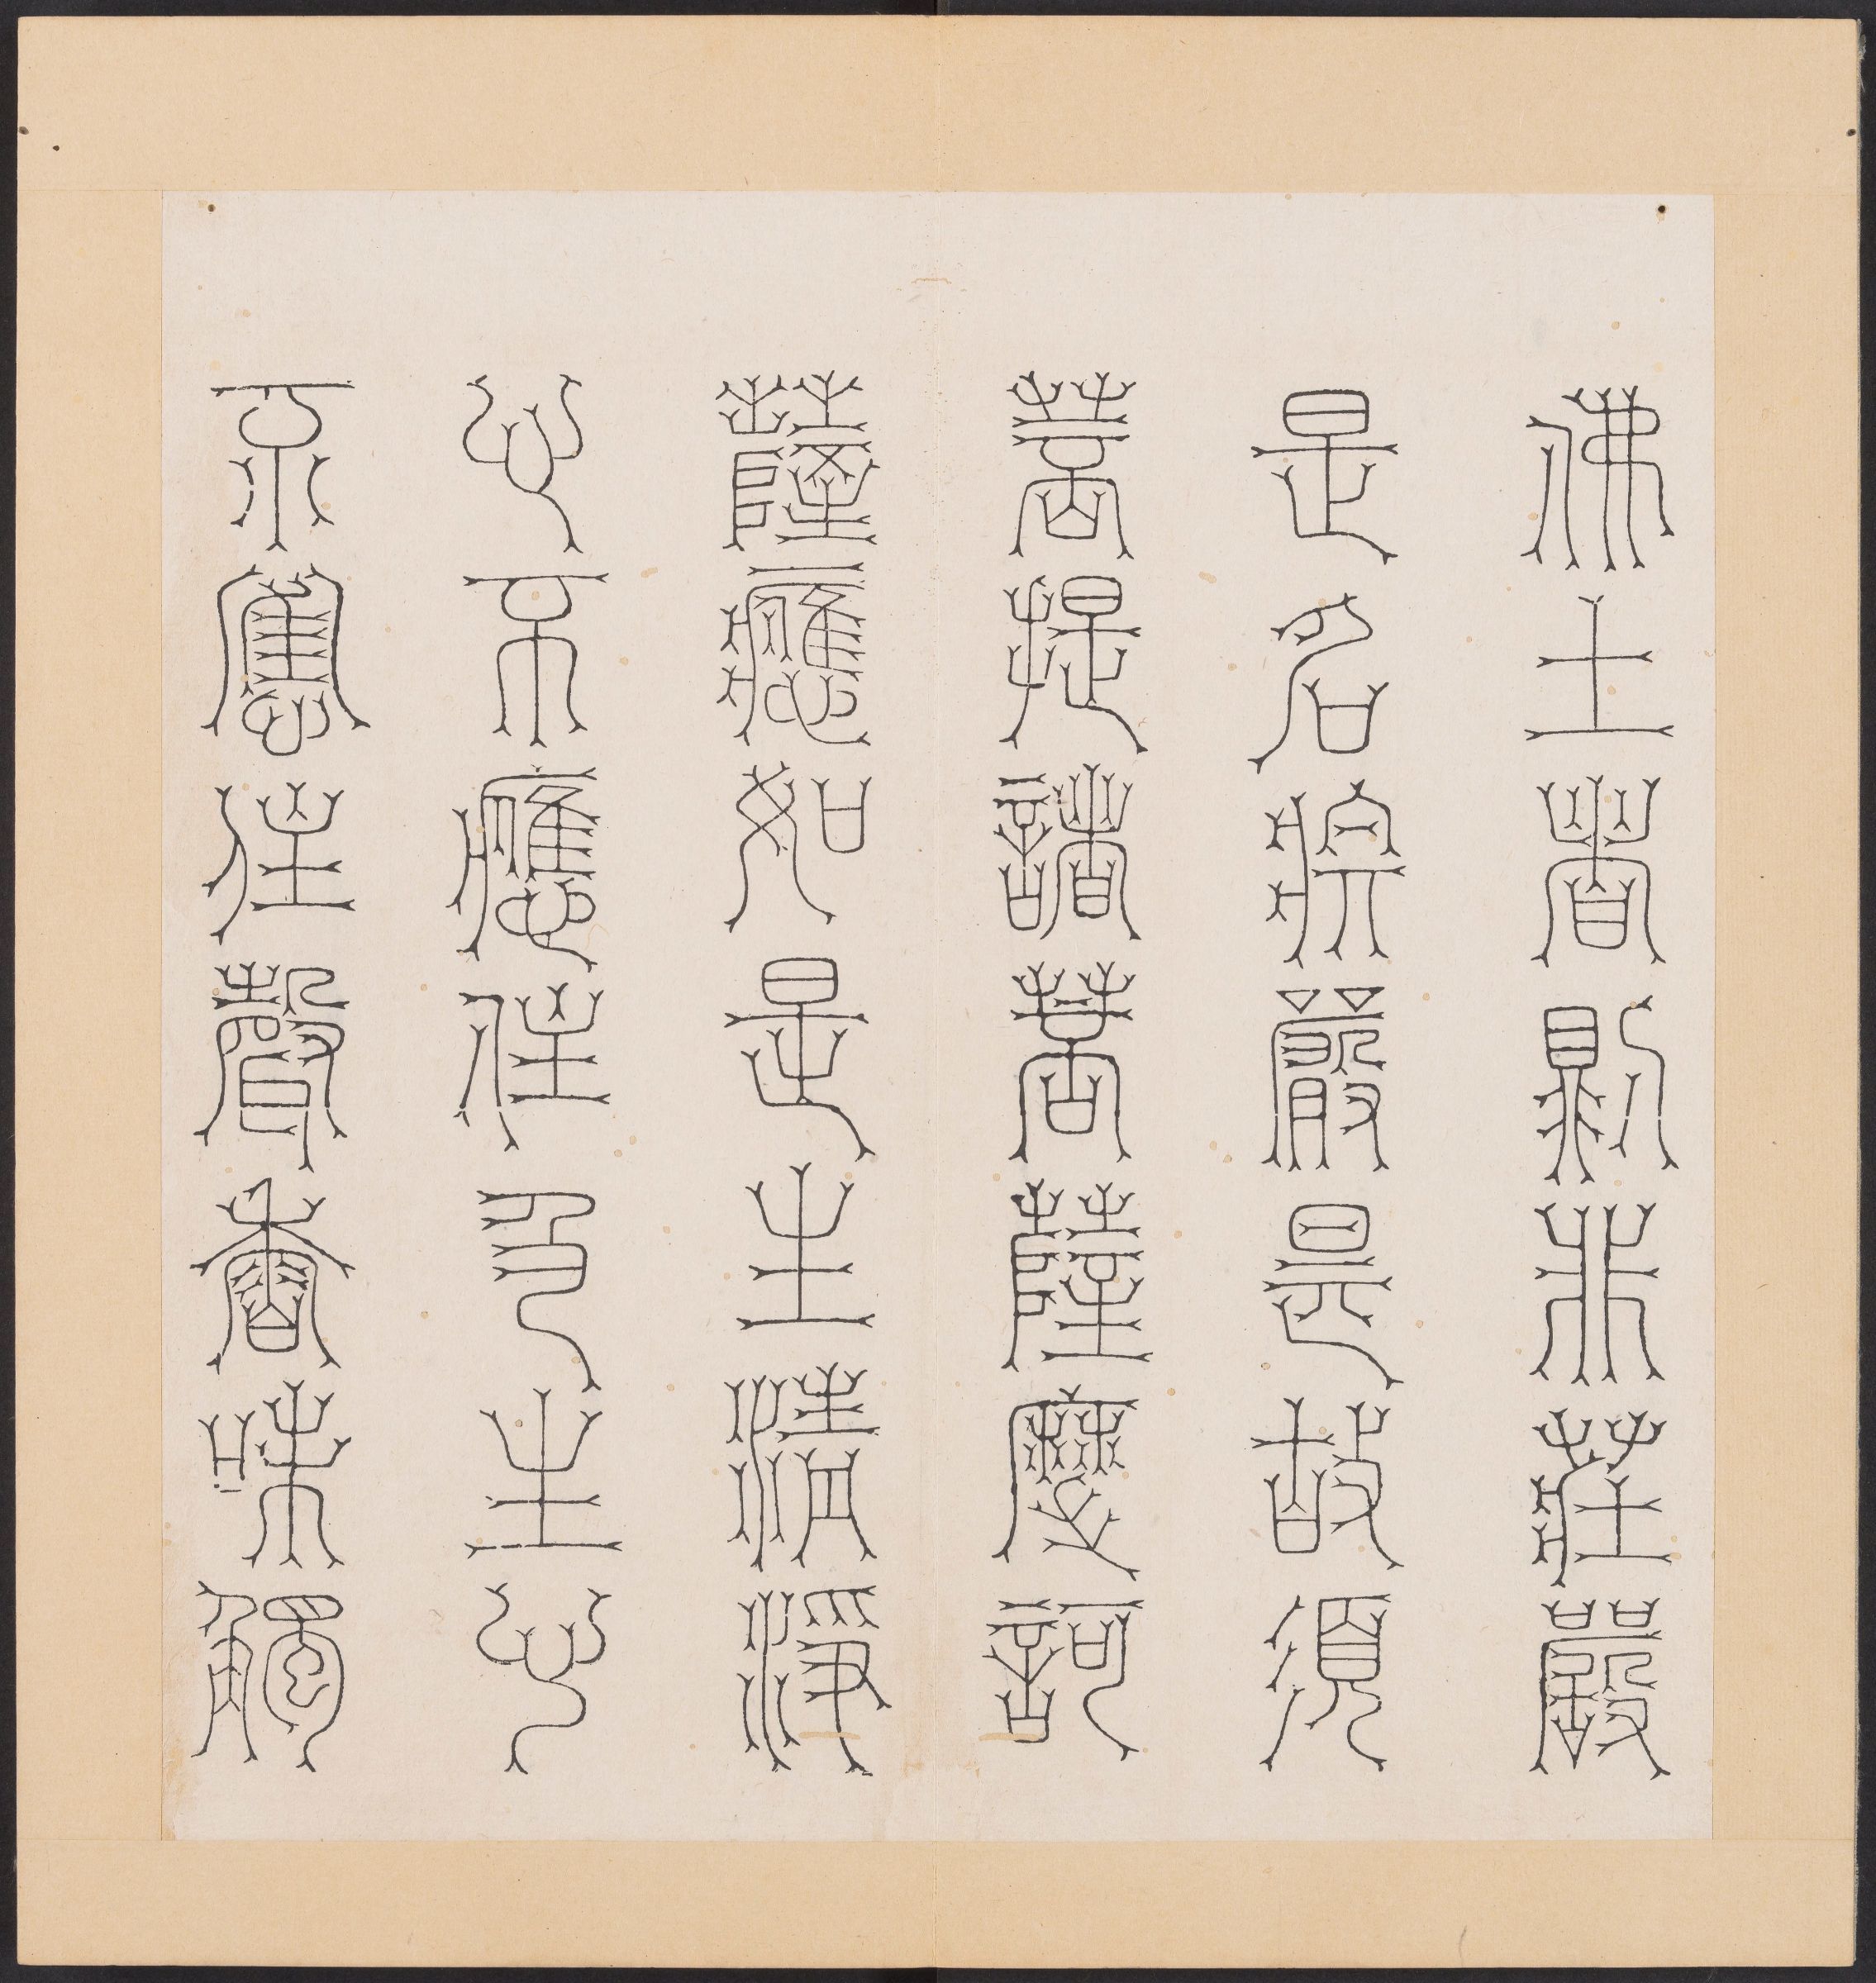 佛土者則非莊嚴
是名莊嚴是故須
菩提諸菩薩摩訶
薩應如是生清淨
心不應住色生心
不應住聲香味觸